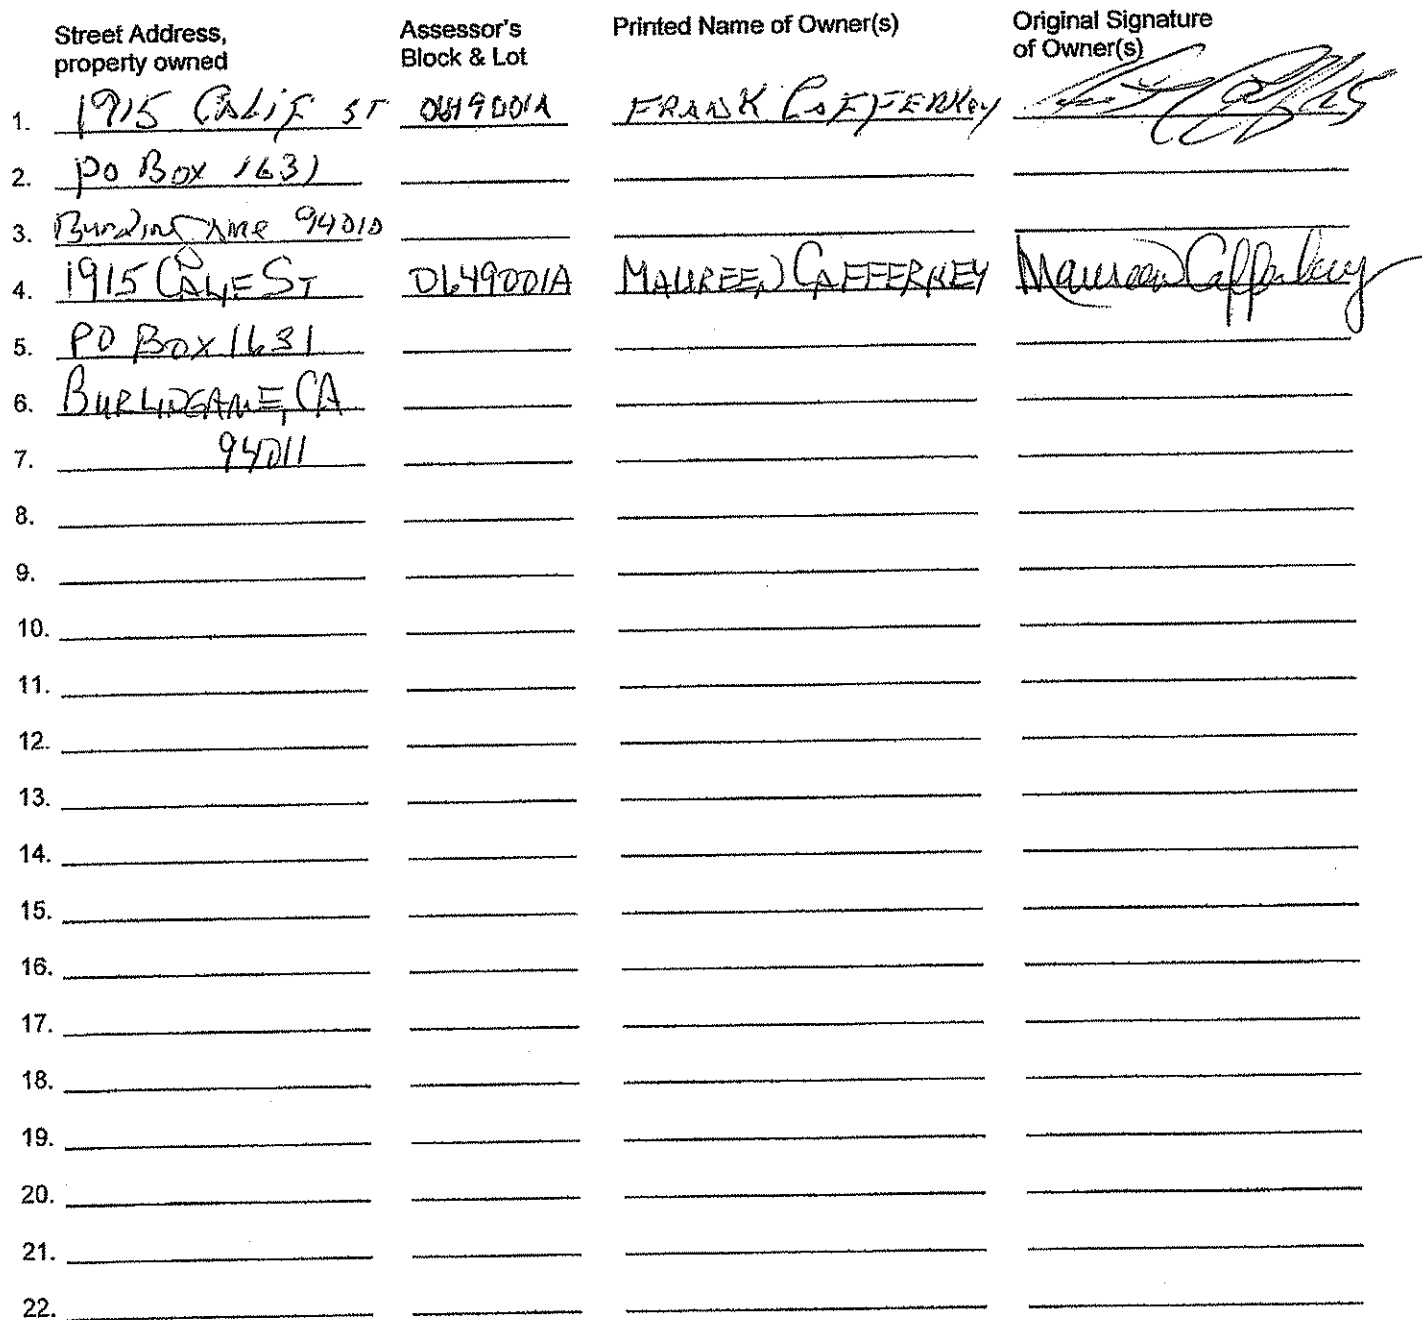 Street Address, property owned Assessor's Block & Lot Printed Name of Owner(s) Original Signature of Owner(s)
1. 1915 CALIF ST 0649001A FRANK CAFFERKEY
2. PO Box 1631
3. Burlingame 94010
4. 1915 CALIF ST 0649001A MAUREEN CAFFERKEY Maureen Cafferkey
5. PO BOX 1631
6. BURLINGAME, CA
7. 94011
8.
9.
10.
11.
12.
13.
14.
15.
16.
17.
18.
19.
20.
21.
22.